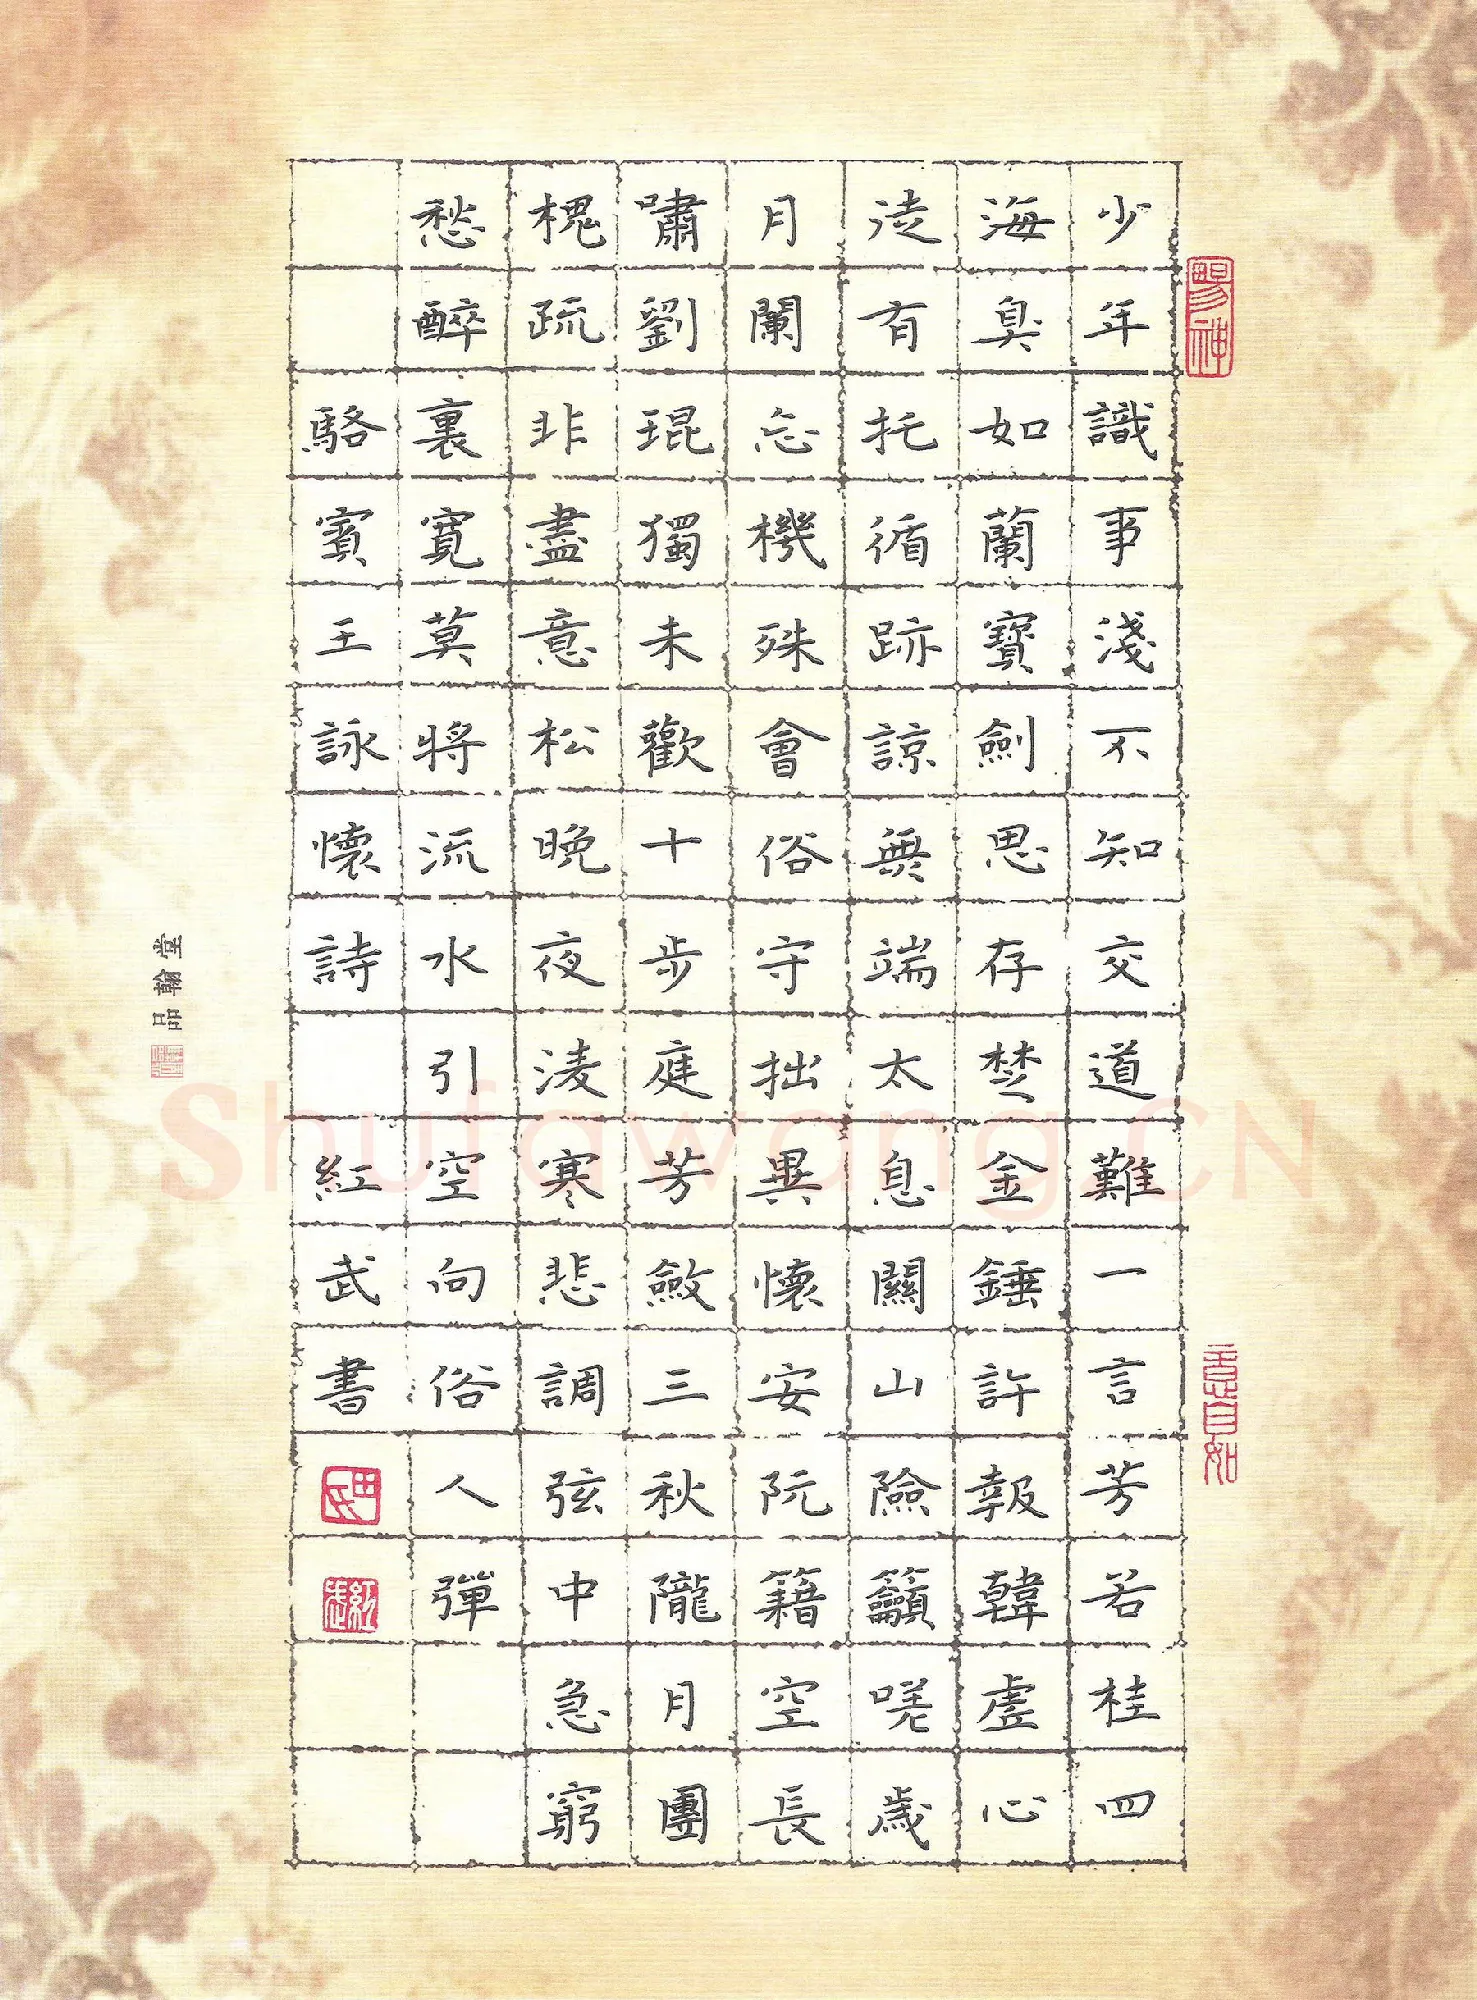 少年識事淺不知交道難一言芳若桂四
海臭如蘭寶劍思存楚金錘許報韓虛心
徒有托循跡諒無端太息關山險籲嗟歲
月闌忘機殊會俗守拙異懷安阮籍空長
嘯劉琨獨未歡十步庭芳斂三秋隴月團
槐疏非盡意松晚夜淩寒悲調弦中急窮
愁醉裏寬莫將流水引空向俗人彈
駱賓王詠懷詩 紅武書
田氏
紅武
意自如
品翰堂
Shufawang.CN